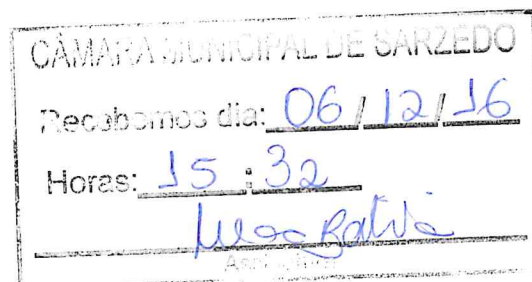 CÂMARA MUNICIPAL DE SARZEDO
Recebemos dia: 06 / 12 / 16
Horas: 15 : 32